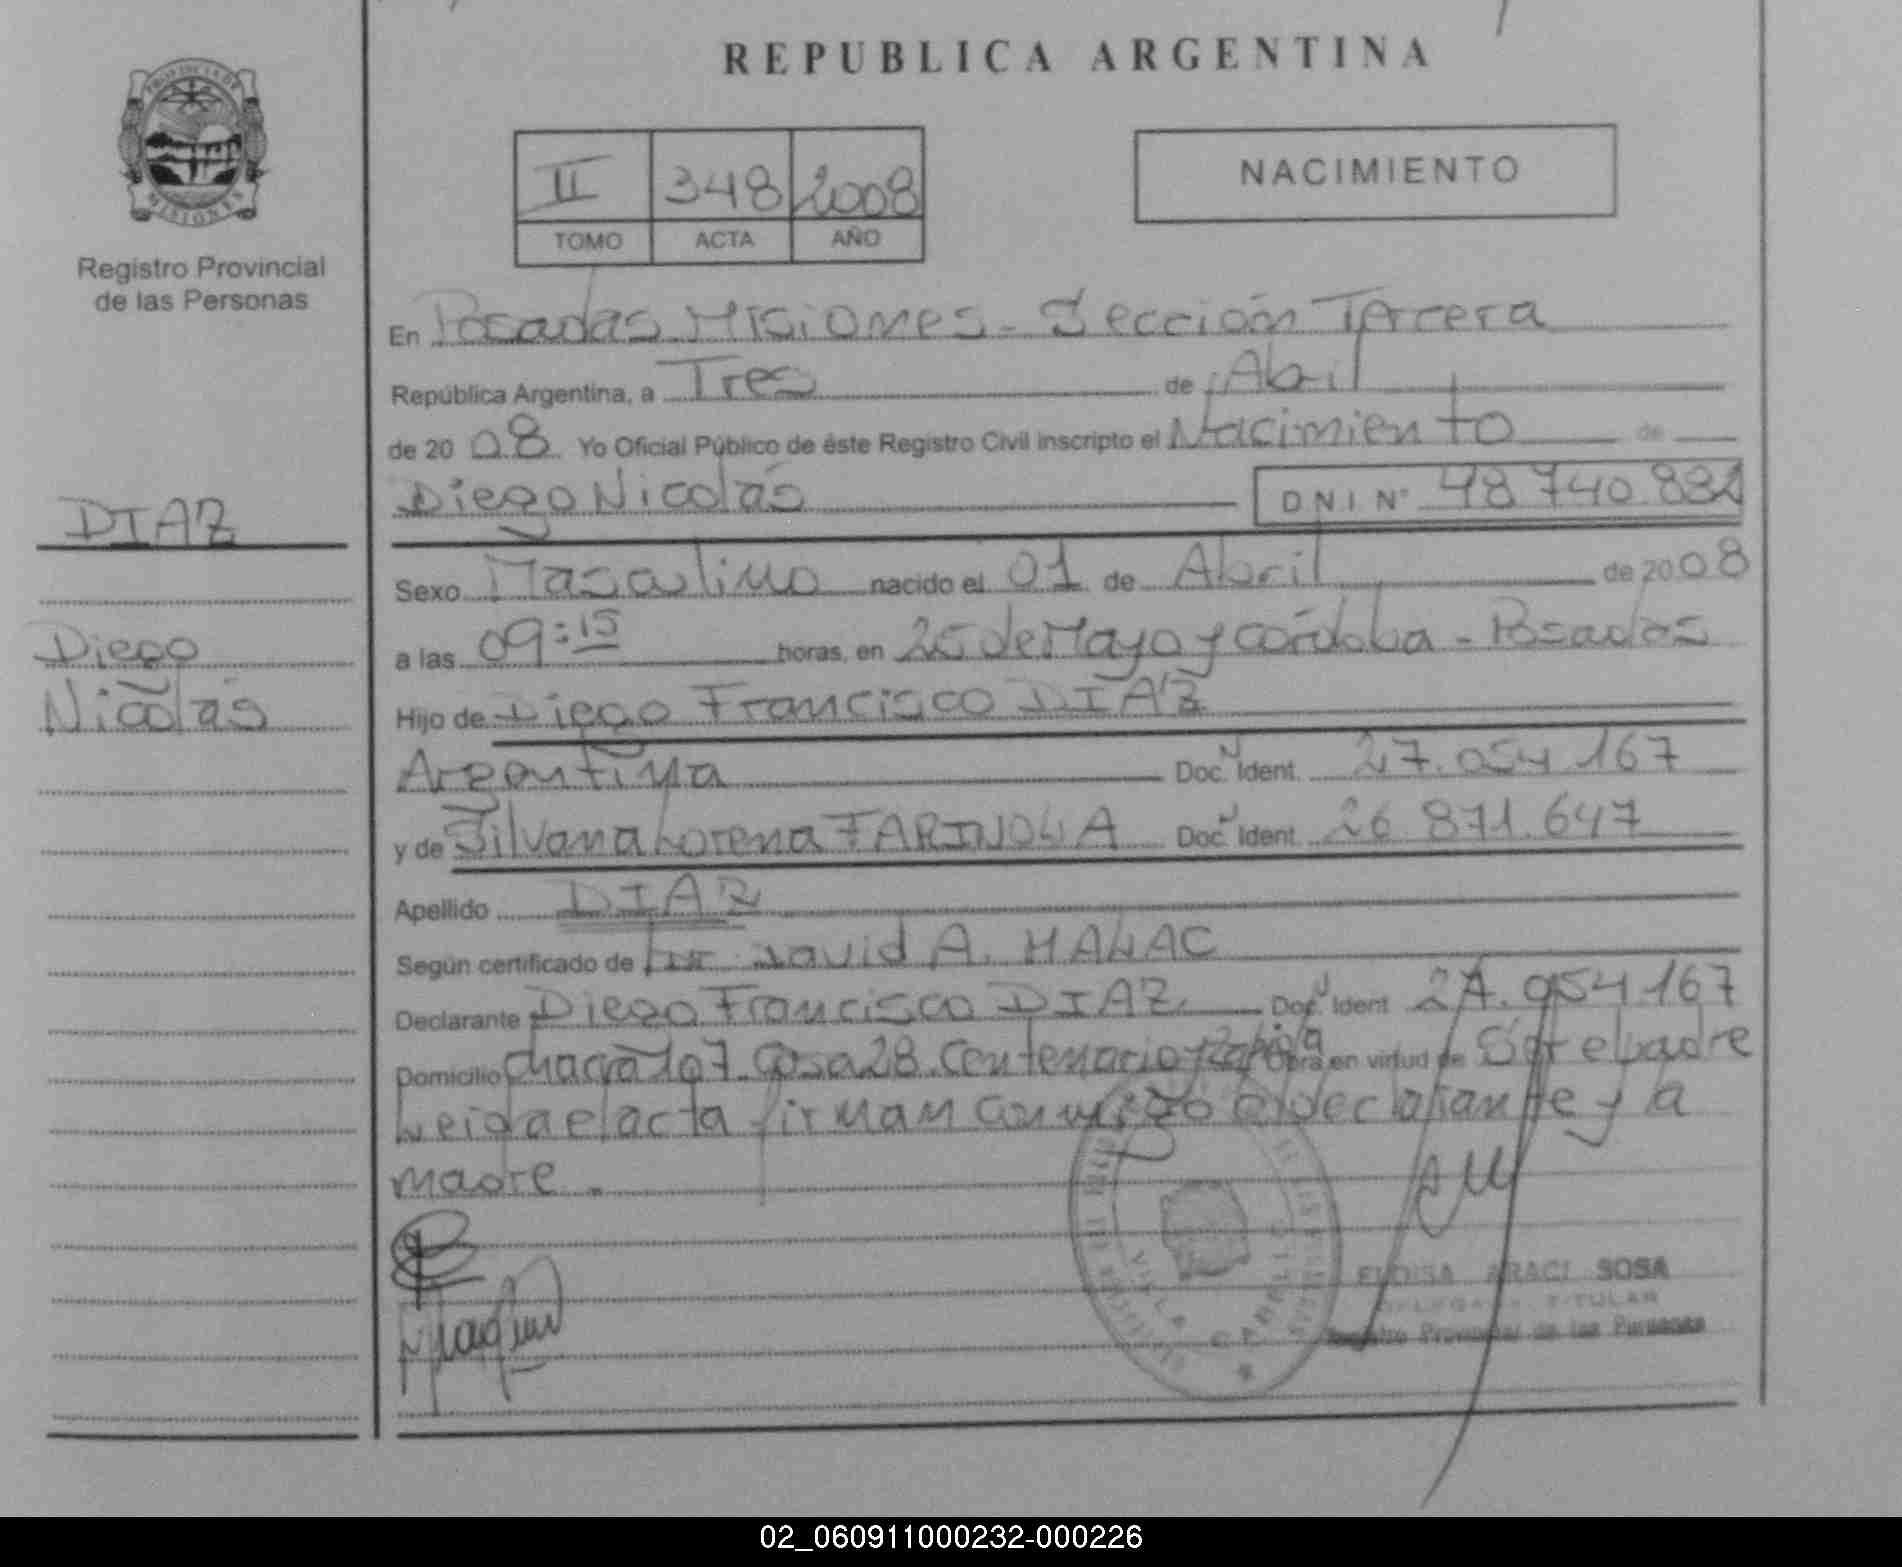 REPUBLICA ARGENTINA
PROVINCIA DE
MISIONES
Registro Provincial
de las Personas
II 348 2008
TOMO ACTA AÑO
NACIMIENTO
En Posadas Misiones - Sección Tercera
República Argentina, a Tres de Abril
de 20 08 Yo Oficial Público de éste Registro Civil inscripto el Nacimiento de
Diego Nicolás D N I N° 48.740.882
DIAZ
Diego
Nicolás
Sexo Masculino nacido el 01 de Abril de 20 08
a las 09:15 horas, en 25 de Mayo y Córdoba - Posadas
Hijo de Diego Francisco DIAZ
Argentina Doc. Ident. 27.054.167
y de Silvana Lorena FARINOLA Doc. Ident. 26.871.647
Apellido DIAZ
Según certificado de David A. MALAC
Declarante Diego Francisco DIAZ Doc. Ident. 27.054.167
Domicilio Chacra 107 Casa 28 Centenario y Obra en virtud de Ser el padre
Leida el acta firman conmigo el declarante y la
madre.
VILLA CABELLO
ELOISA ARACI SOSA
DELEGADA TITULAR
Registro Provincial de las Personas
02_060911000232-000226